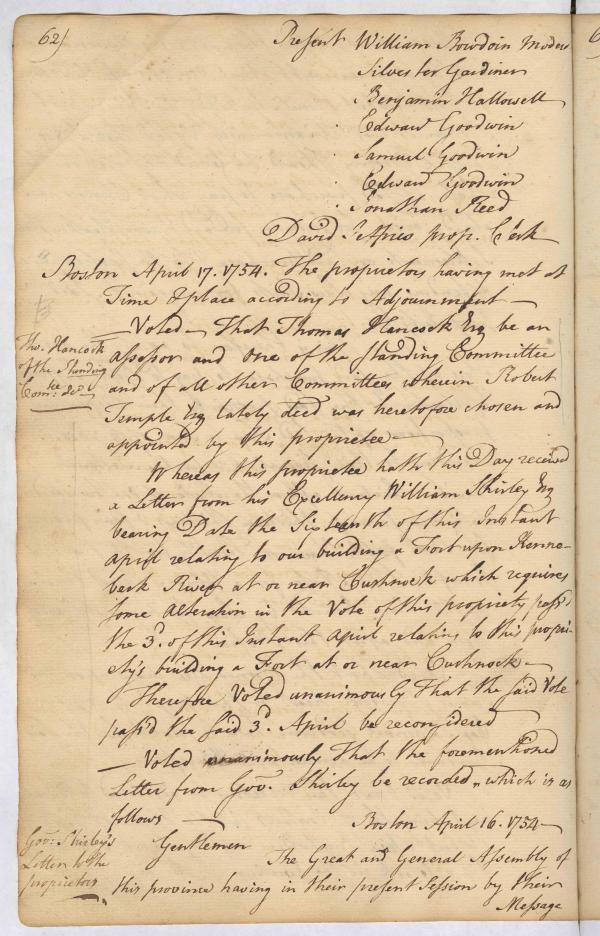 62/
Present William Bowdoin Moder
Silvester Gardiner
Benjamin Hallowell
Edward Goodwin
Samuel Goodwin
Edward Goodwin
Jonathan Reed
David Jeffries prop. Clerk
Boston April 17. 1754. The proprietors having met at
Time & place according to Adjournment —
— Voted — That Thomas Hancock Esq be an
Tho.s Hancock
of the Standing
Com.tee &c
assessor and one of the standing Committee
and of all other Committees wherein Robert
Temple Esq lately dec'd was heretofore chosen and
appointed by this proprietee —
Whereas this proprietee hath this Day received
a Letter from his Excellency William Shirley Esq
bearing Date the Sixteenth of this Instant
April relating to our building a Fort upon Kenne-
beck River at or near Cushnock which requires
some alteration in the Vote of this propriety pass'd
the 3.d of this Instant April relating to this propri-
ety's building a Fort at or near Cushnock —
Therefore Voted unanimously That the said Vote
pass'd the said 3.d April be reconsidered
— Voted unanimously That the forementioned
Letter from Gov.r Shirley be recorded, which is as
follows —
Boston April 16. 1754 —
Gov.r Shirley's
Letter to the
proprietors
Gentlemen
The Great and General Assembly of
this province having in their present Session by their
Message